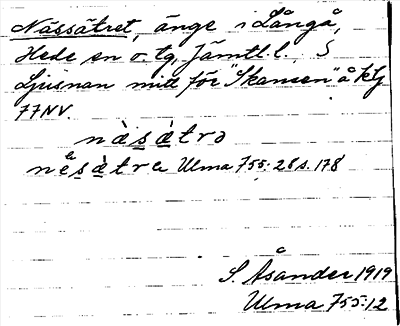 Nässätret, änge i Långå,
Hede sn o. tg. Jämtl. l. S
Ljusnan mitt för "Skansen" å ktj
77NV.
nàsàtrə
nèsàtra Ulma 755:28 s. 178
S. Åsander 1919
Ulma 755:12